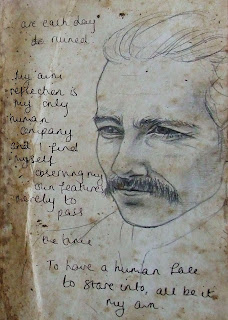 are each day
de ruined
My own
reflection is
my only
human
company
and I find
myself
observing my
own features
merely to
pass
the time
To have a human face
to stare into, all be it
my own.